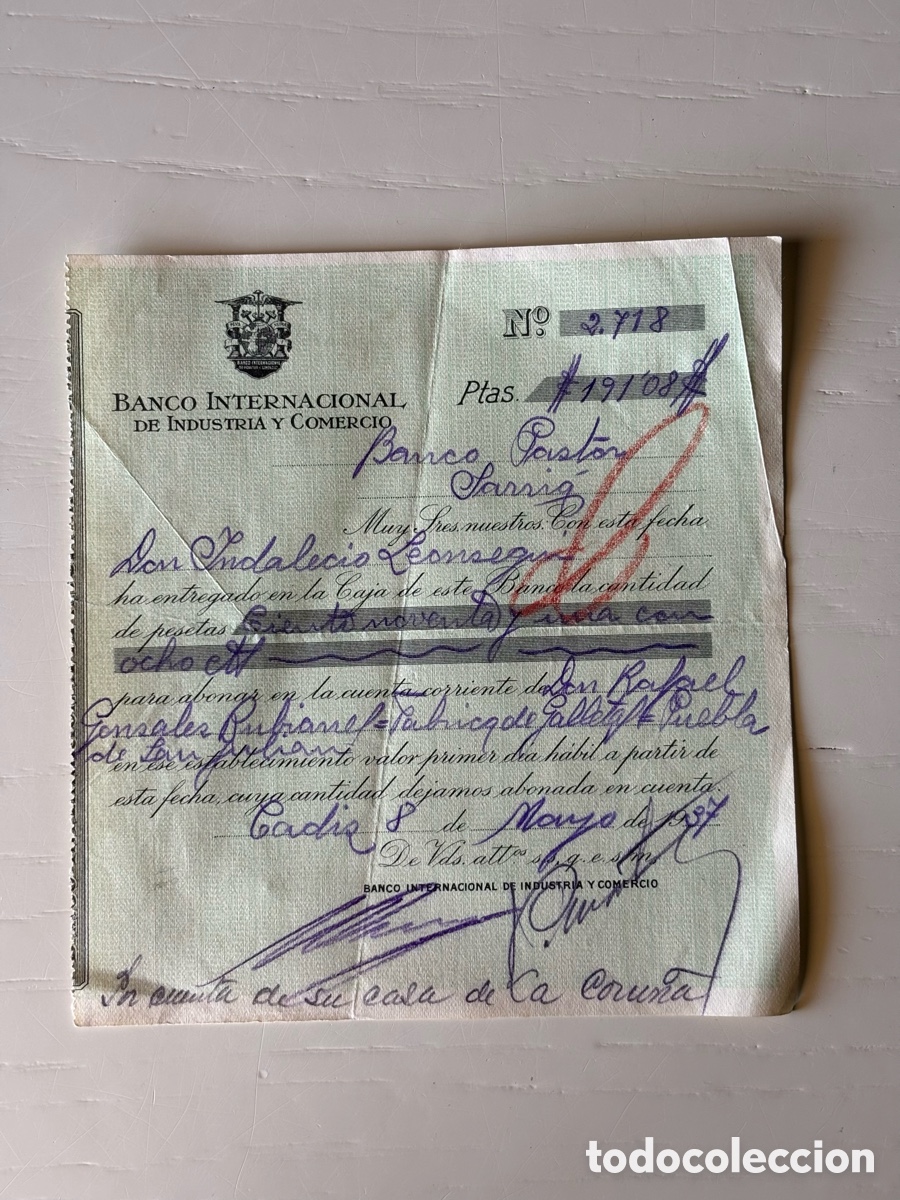 BANCO INTERNACIONAL
DE INDUSTRIA Y COMERCIO
BANCO INTERNACIONAL
DE INDUSTRIA Y COMERCIO
Nº 2.718
Ptas. #191'08#
Banco Pastor
Sarriá
Muy Sres. nuestros: Con esta fecha
Don Indalecio Leonsegui
ha entregado en la Caja de este Banco la cantidad
de pesetas Ciento noventa y una con
ocho cts
para abonar en la cuenta corriente de Don Rafael
Gonsales = Fabrica de Galletas = Puebla
de San Julian
en ese establecimiento valor primer dia hábil a partir de
esta fecha, cuya cantidad dejamos abonada en cuenta.
Cadis 8 de Mayo de 1937
De Vds. attos s.s. q. e. s. m.
BANCO INTERNACIONAL DE INDUSTRIA Y COMERCIO
Por cuenta de su casa de La Coruña
todocoleccion